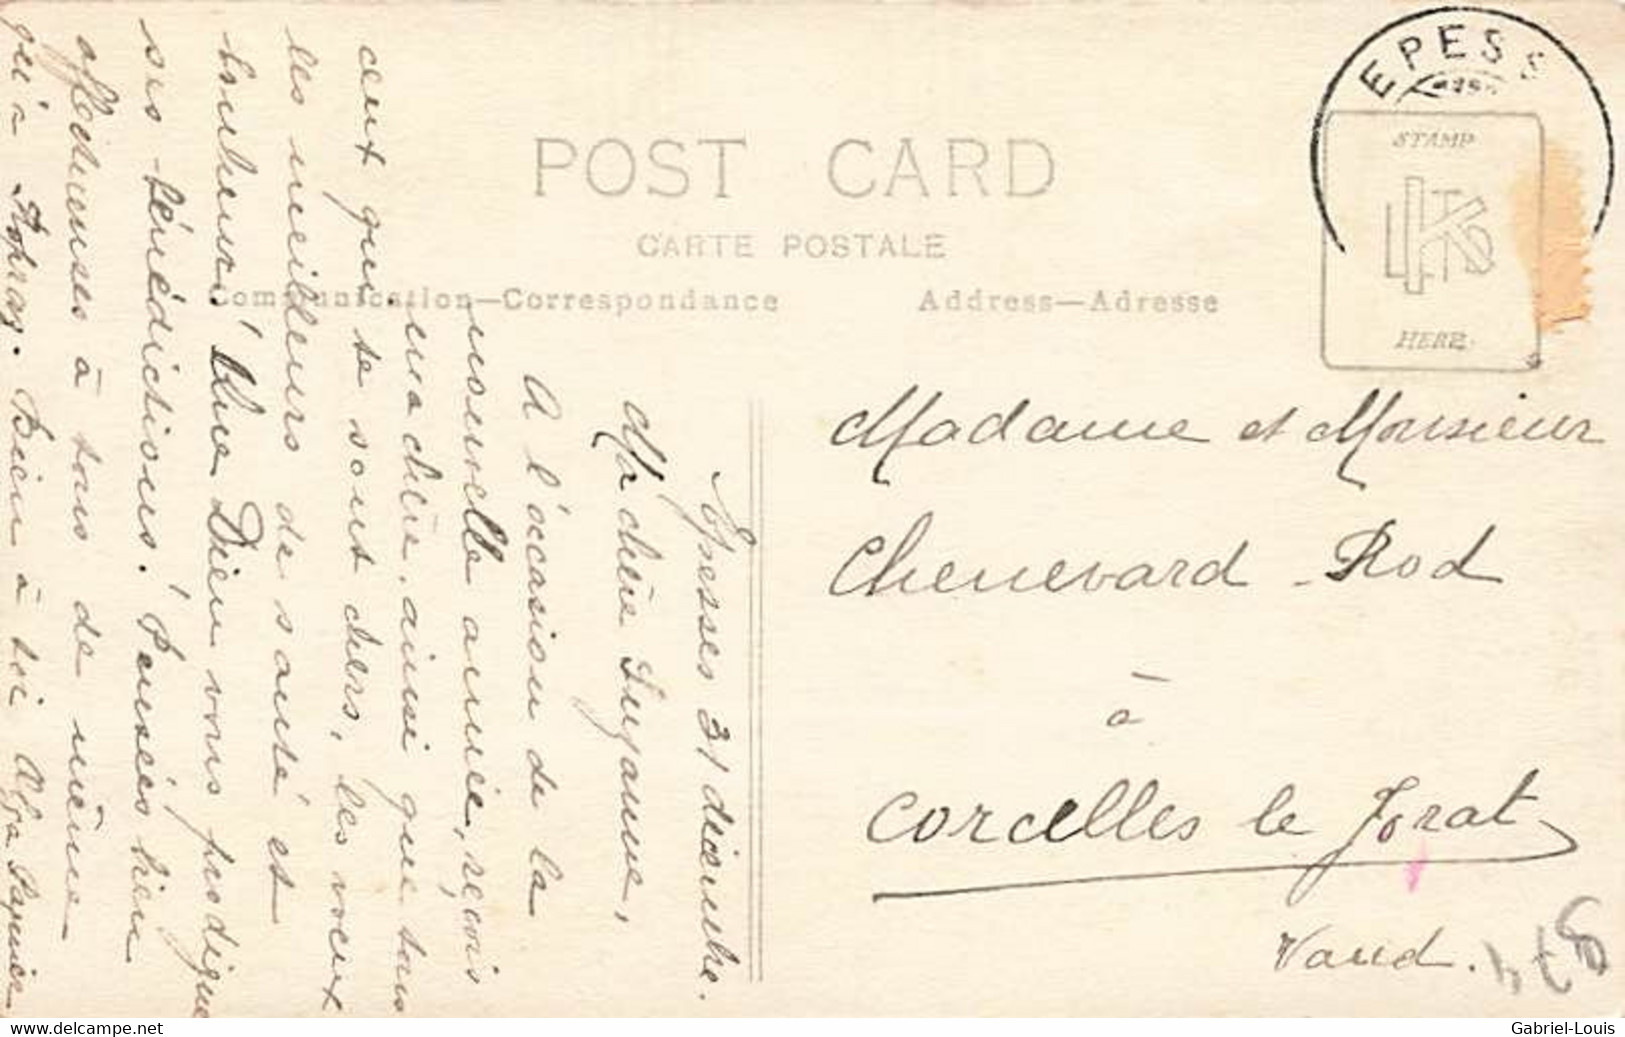 POST CARD
CARTE POSTALE
Communication—Correspondance
Address—Adresse
EPESS
STAMP
HERE
Epesses 31 décembre.
Ma chère Suzanne,
A l'occasion de la
nouvelle année, reçois
ma chère, ainsi que tous
ceux qui te sont chers, les vœux
les meilleurs de santé et
bonheur! Que Dieu vous prodigue
ses bénédictions! Pensées bien
affectueuses à tous de même
qu'à Bien à toi
Madame et Monsieur
Chenevard - Rod
à
Corcelles le Jorat
Vaud.
delcampe.net
Gabriel-Louis